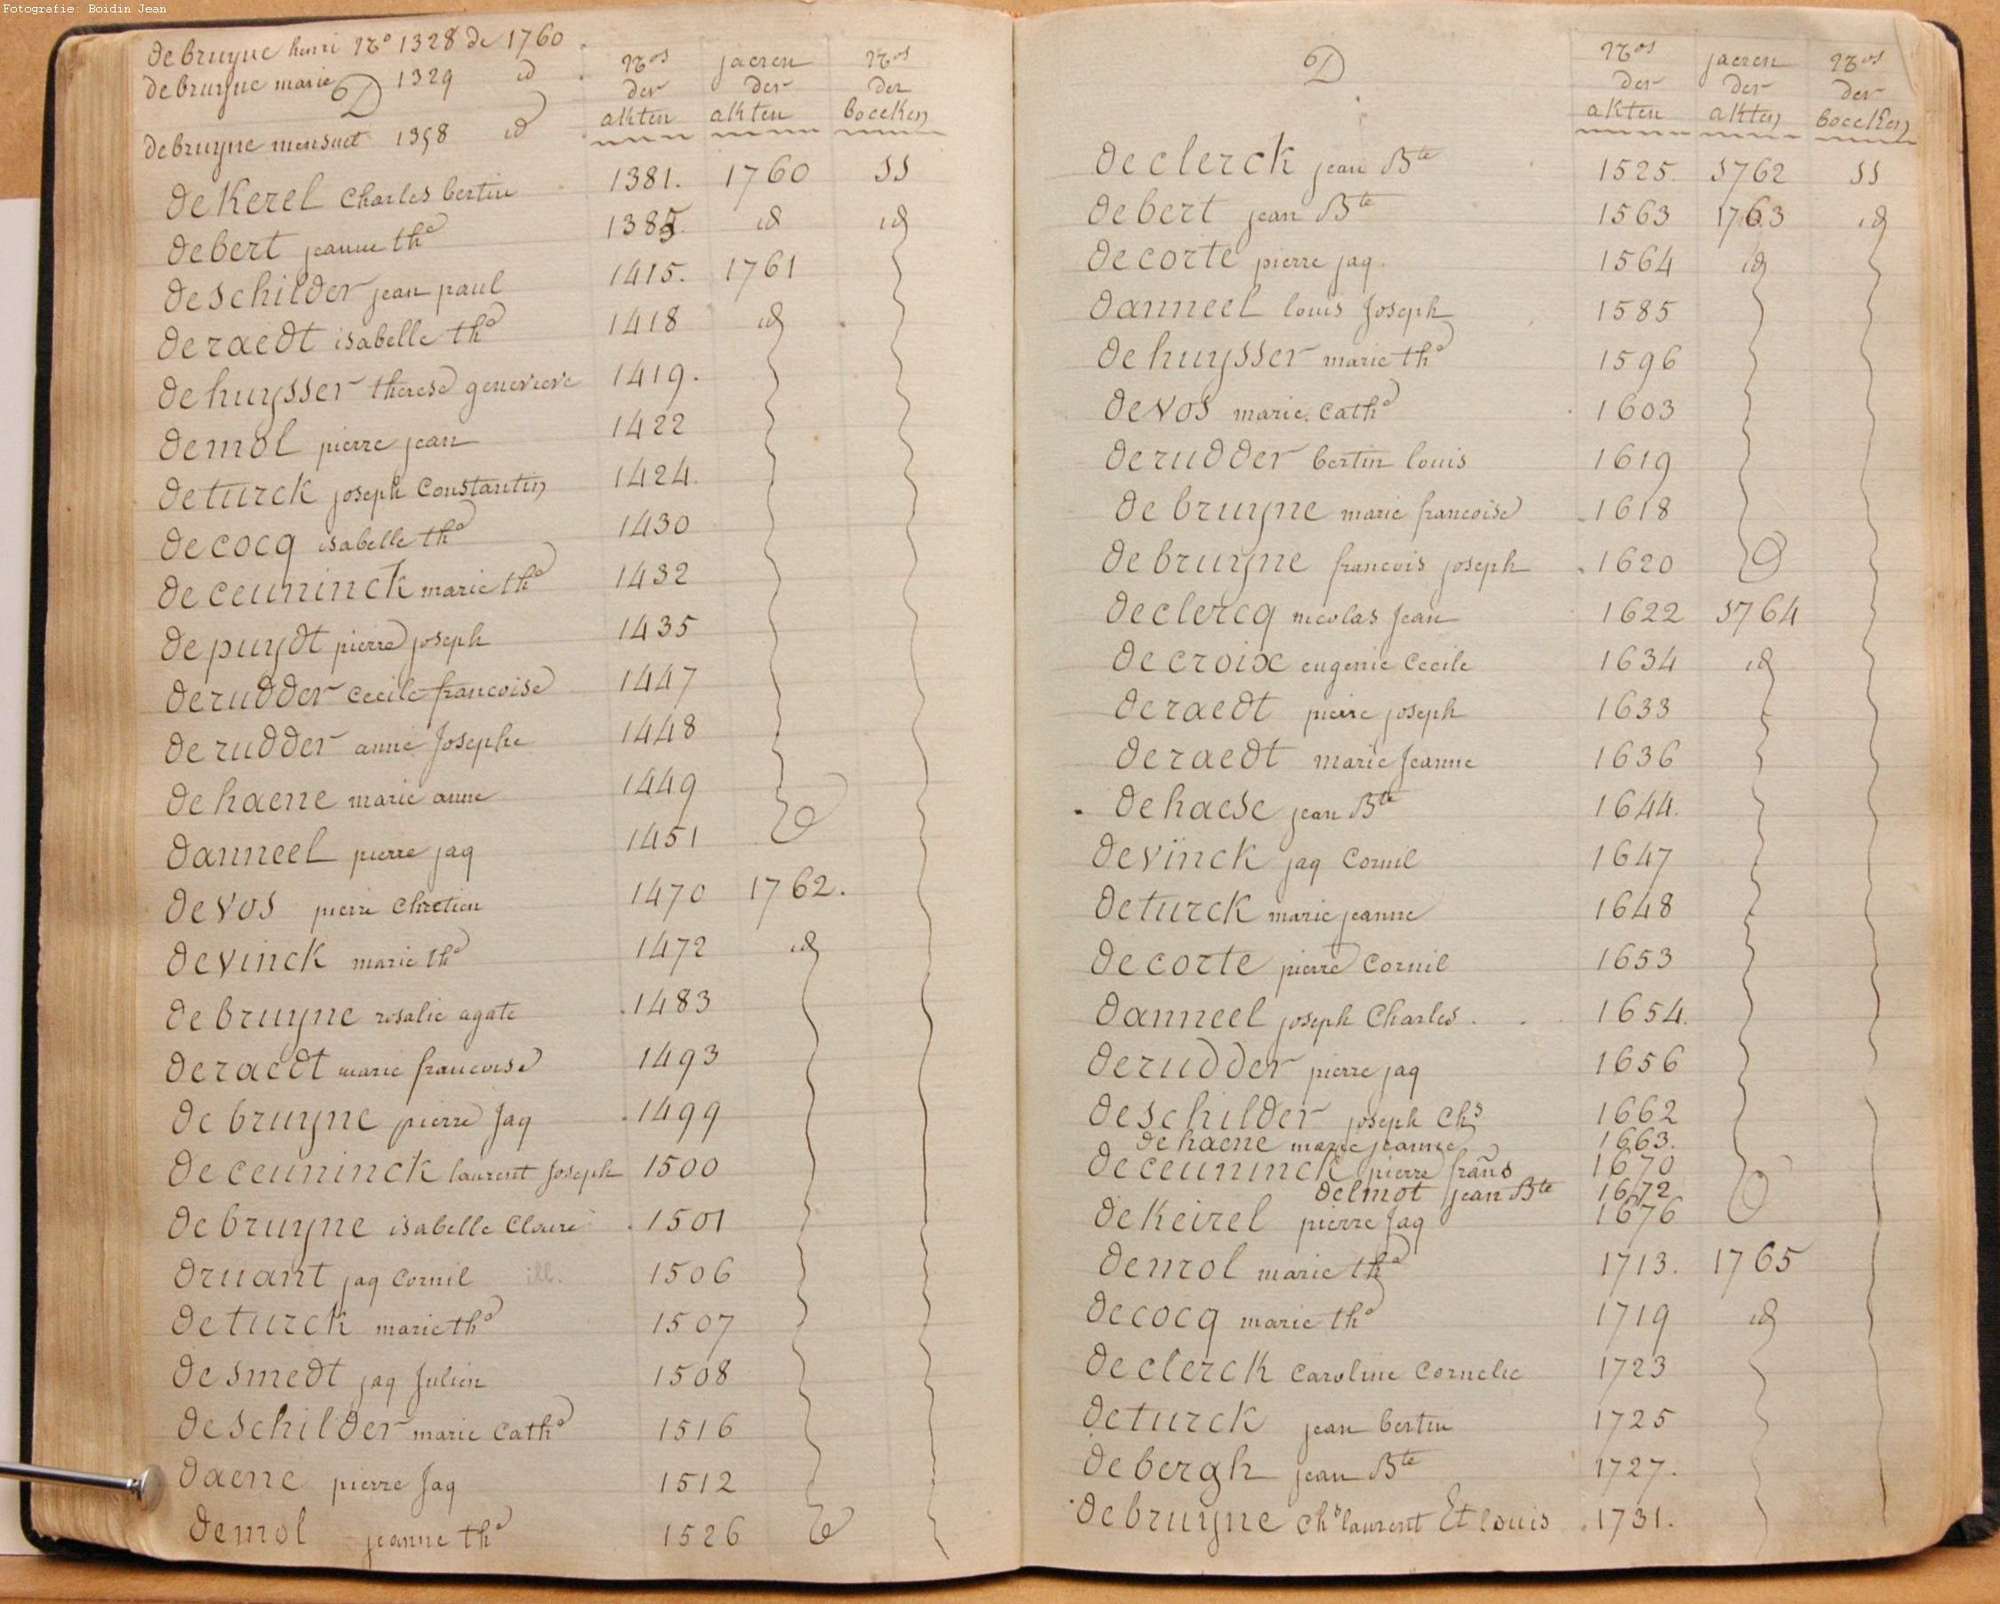 Fotografie: Boidin Jean
debruyne henri No 1328 de 1760
debruyne marie 1329 id
D
debruyne mansuet 1358 id
Nos der akten jaeren der akten Nos der boecken
dekerel Charles bertin 1381. 1760 11
debert jeanne the 1385. id id
deschilder jean paul 1415. 1761
deraedt isabelle the 1418 id
dehuysser therese genevieve 1419.
demol pierre jean 1422
deturck joseph Constantin 1424.
decocq isabelle the 1430
deceuninck marie the 1432
depuydt pierre joseph 1435
derudder Cecile francoise 1447
derudder anne Josephe 1448
dehaene marie anne 1449
danneel pierre jaq 1451
devos pierre Chretien 1470 1762.
devinck marie the 1472 id
debruyne rosalie agate 1483
deraedt marie francoise 1493
debruyne pierre Jaq 1499
deceuninck laurent Joseph 1500
debruyne isabelle Claire 1501
druant jaq Cornil ill. 1506
deturck marie the 1507
desmedt jaq Julien 1508
deschilder marie Cathe 1516
daene pierre Jaq 1512
demol jeanne the 1526
D
Nos der akten jaeren der akten Nos der boecken
declerck jean Bte 1525. 1762 11
debert jean Bte 1563 1763 id
decorte pierre jaq. 1564 id
danneel louis Joseph 1585
dehuysser marie the 1596
devos marie Cathe 1603
derudder bertin louis 1619
debruyne marie francoise 1618
debruyne francois joseph 1620
declercq nicolas Jean 1622 1764
decroix eugenie Cecile 1634 id
deraedt pierre joseph 1633
deraedt marie Jeanne 1636
dehaese jean Bte 1644.
devinck jaq Cornil 1647
deturck marie jeanne 1648
decorte pierre Cornil 1653
danneel joseph Charles. 1654.
derudder pierre jaq 1656
deschilder joseph Chs 1662
dehaene marie jeanne 1663.
deceuninck pierre frans 1670
delmot jean Bte 1672
dekeirel pierre Jaq 1676
demol marie the 1713. 1765
decocq marie the 1719 id
declerck Caroline Cornelie 1723
deturck jean bertin 1725
debergh jean Bte 1727.
debruyne Chs laurent Et louis 1731.